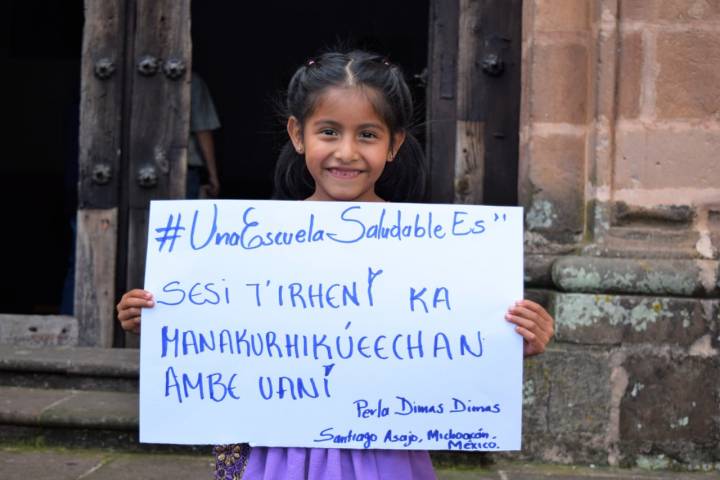 #UnaEscuelaSaludableEs"
SESI T'IRHENÍ KA
MANAKURHIKÚEECHAN
AMBE UANÍ
Perla Dimas Dimas
Santiago Asajo, Michoacán.
México.